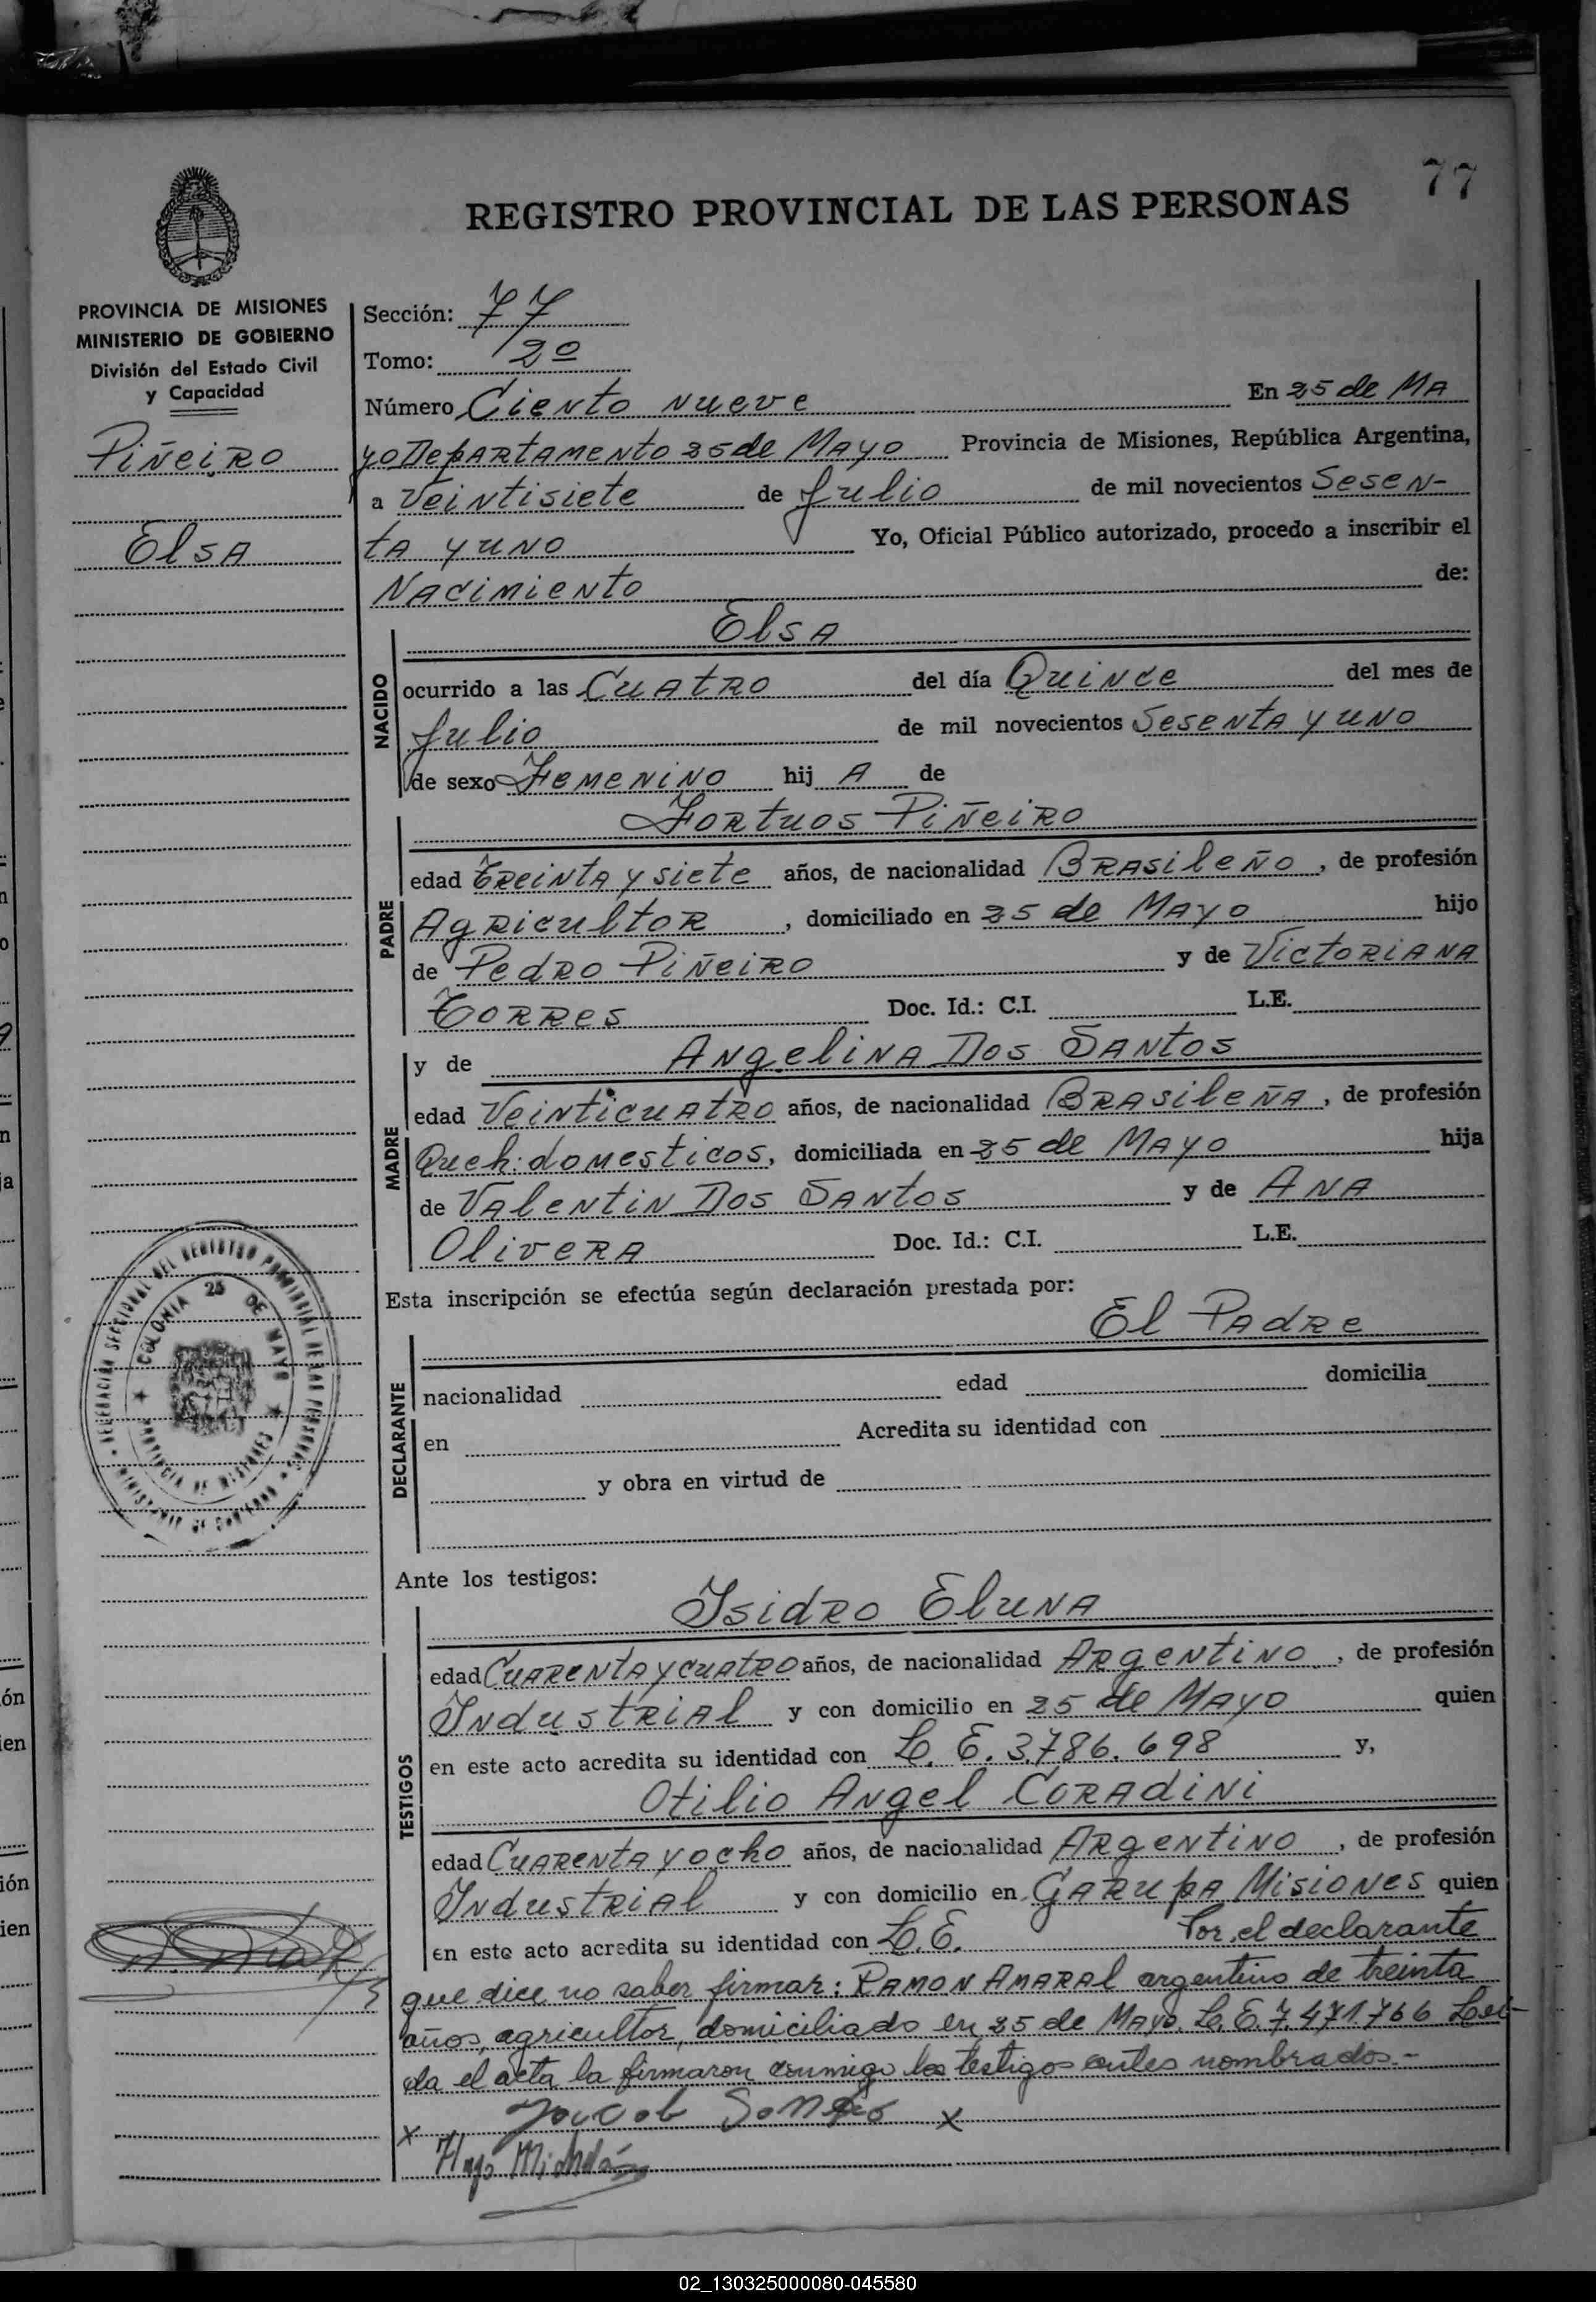 77
REGISTRO PROVINCIAL DE LAS PERSONAS
PROVINCIA DE MISIONES
MINISTERIO DE GOBIERNO
División del Estado Civil
y Capacidad
Piñeiro
Elsa
Sección: 77
Tomo: 2º
Número Ciento nueve En 25 de Ma
yo Departamento 25 de Mayo Provincia de Misiones, República Argentina,
a veintisiete de Julio de mil novecientos Sesen-
ta y uno Yo, Oficial Público autorizado, procedo a inscribir el
Nacimiento de:
Elsa
NACIDO
ocurrido a las Cuatro del día Quince del mes de
Julio de mil novecientos Sesenta y uno
de sexo Femenino hij A de
Fortuos Piñeiro
PADRE
edad treinta y siete años, de nacionalidad Brasileño, de profesión
Agricultor, domiciliado en 25 de Mayo hijo
de Pedro Piñeiro y de Victoriana
Torres Doc. Id.: C.I. L.E.
y de Angelina Dos Santos
MADRE
edad Veinticuatro años, de nacionalidad Brasileña, de profesión
Queh. domesticos, domiciliada en 25 de Mayo hija
de Valentin Dos Santos y de Ana
Olivera Doc. Id.: C.I. L.E.
Esta inscripción se efectúa según declaración prestada por:
El Padre
DECLARANTE
nacionalidad edad domicilia
en Acredita su identidad con
y obra en virtud de
COLONIA 25 DE MAYO
PROVINCIA DE MISIONES
Ante los testigos:
Isidro Eluna
TESTIGOS
edad Cuarenta y cuatro años, de nacionalidad Argentino, de profesión
Industrial y con domicilio en 25 de Mayo quien
en este acto acredita su identidad con L. E. 3.786.698 y,
Otilio Angel Coradini
edad Cuarenta y ocho años, de nacionalidad Argentino, de profesión
Industrial y con domicilio en Garupa Misiones quien
en este acto acredita su identidad con L.E. Por el declarante
que dice no saber firmar: Ramon Amaral argentino de treinta
años, agricultor, domiciliado en 25 de Mayo. L. E. 7.471.766 Leí-
da el acta la firmaron conmigo los testigos antes nombrados.-
x x
Hugo
02_130325000080-045580